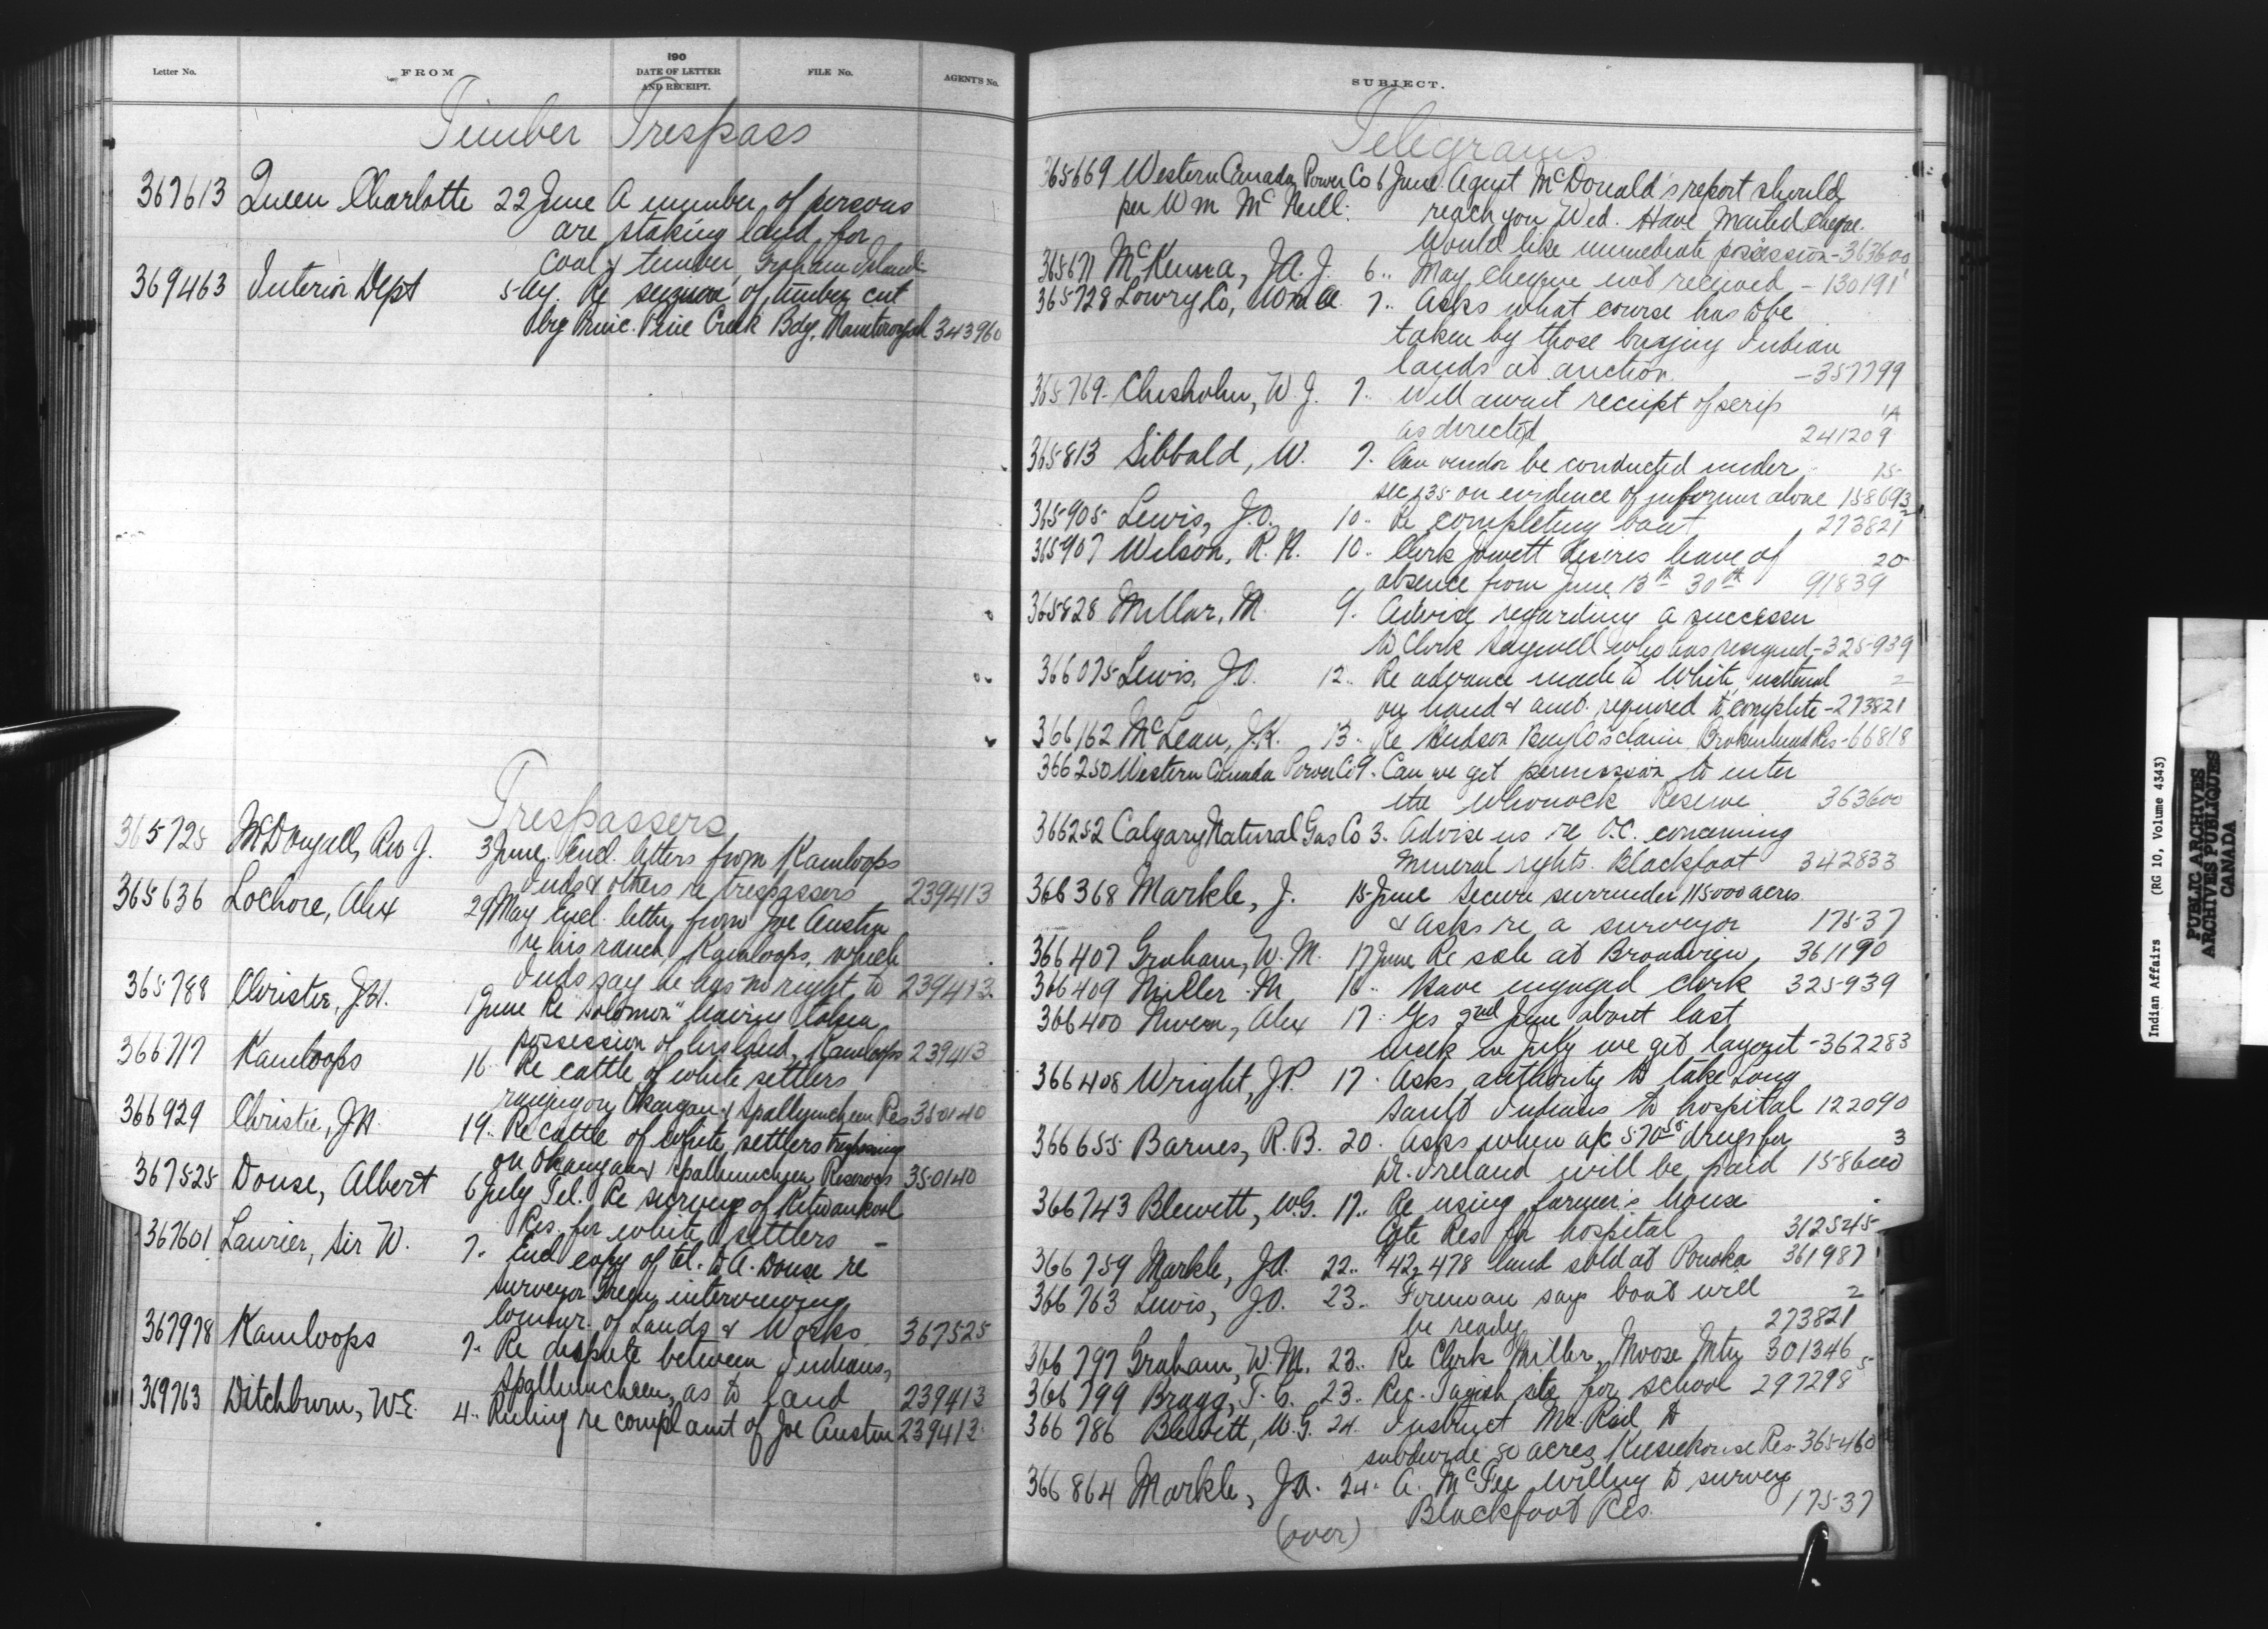 Letter No.
FROM
190
DATE OF LETTER
AND RECEIPT.
FILE No.
AGENT'S No.
Timber Trespass
367613 Queen Charlotte 22 June A number of persons
are staking land for
coal & timber, Graham Island
369463 Interior Dept 5 Ay. Re seizure of timber cut
Pine Creek Bdy. 343960
Trespassers
365725 McDougall, Rev J. 3 June. Encl. letters from Kamloops
Inds & others re trespassers 239413
365636 Lochore, Alex 29 May Encl. letter from Joe Austin
re his ranch Kamloops, which
Inds say he has no right to 239413
365788 Christie, J.H. 1 June Re "Solomon" having taken
possession of his land, Kamloops 239413
366717 Kamloops 16 " Re cattle of white settlers
ranging on Okangan & Spallumcheen Res 350140
366929 Christie, J.H. 19 " Re cattle of white settlers trespassing
on Okanagan & Spallumcheen Reserves 350140
367525 Douse, Albert 6 July Tel. Re survey of Kitwankool
Res. for white settlers -
367601 Laurier, Sir W. 7 " Encl copy of tel. to A. Douse re
surveyor Green interviewing
Commr. of Lands & Works 367525
367978 Kamloops 7 " Re dispute between Indians,
Spallumcheen, as to land 239413
369763 Ditchburn, W.E. 4 " Ruling re complaint of Joe Austin 239413
SUBJECT.
Telegrams
365669 Western Canada Power Co 6 June. Agent McDonald's report should
per Wm McNeill. reach you Wed. Have marked cheque.
Would like immediate possession - 363600
365671 McKenna, J.A.J. 6 " May cheque not received - 130191
365728 Lowry Co, Wm A. 7 " Asks what course has to be
taken by those buying Indian
lands at auction. - 357799
365769 Chisholm, W.J. 7 " Will await receipt of scrip
as directed 241209 1A
365813 Sibbald, W. 7 " Can vendor be conducted under 15
sec 135 on evidence of informer alone 158693
365905 Lewis, J.O. 10 " Re completing boat 273821 2
365907 Wilson, R.N. 10 " Clerk Jowett desires leave of 20
absence from June 13th 30th 91839
365828 Millar, M. 9 " Advise regarding a successor
to Clerk Saywell who has resigned - 325939
366075 Lewis, J.O. 12 " Re advance made to White, material 2
on hand & amt. required to complete - 273821
366162 McLean, J.K. 13 " Re Hudson Bay Co's claim Brokenhead Res - 66818
366250 Western Canada Power Co 9 " Can we get permission to enter
the Whonock Reserve 363600
366252 Calgary Natural Gas Co 3 " Advise us re O.C. concerning
mineral rights. Blackfoot 342833
366368 Markle, J. 15 June Secure surrender 115000 acres
& asks re a surveyor 17537
366407 Graham, W.M. 17 June Re sale at Broadview 361190
366409 Miller M 16 " Have engaged clerk 325939
366400 Niven, Alex 17 " Yes 2nd June about last
week in July we get layout - 362283
366408 Wright, J.P. 17 " Asks authority to take Long
Sault Indians to hospital 122090
366655 Barnes, R.B. 20 " Asks when a/c 570.55 drugs for 3
Dr. Ireland will be paid 158600
366743 Blewett, W.G. 17 " Re using farmer's house
Cote Res for hospital 312545
366759 Markle, J.A. 22 " $42,478 land sold at Ponoka 361987
366763 Lewis, J.O. 23 " Foreman says boat will 2
be ready 273821
366797 Graham, W.M. 23 " Re Clerk Miller, Moose Mtn 301346
366799 Bragg, T.G. 23 " Rec. Tagish site for school 297298 5
366786 Blewett, W.G. 24 " Instruct Mr. Reid to
subdivide 80 acres Keeseekouse Res - 365460
366864 Markle, J.A. 24 " A. McFee willing to survey
Blackfoot Res. 17537
(over)
Indian Affairs (RG 10, Volume 4343)
PUBLIC ARCHIVES
ARCHIVES PUBLIQUES
CANADA